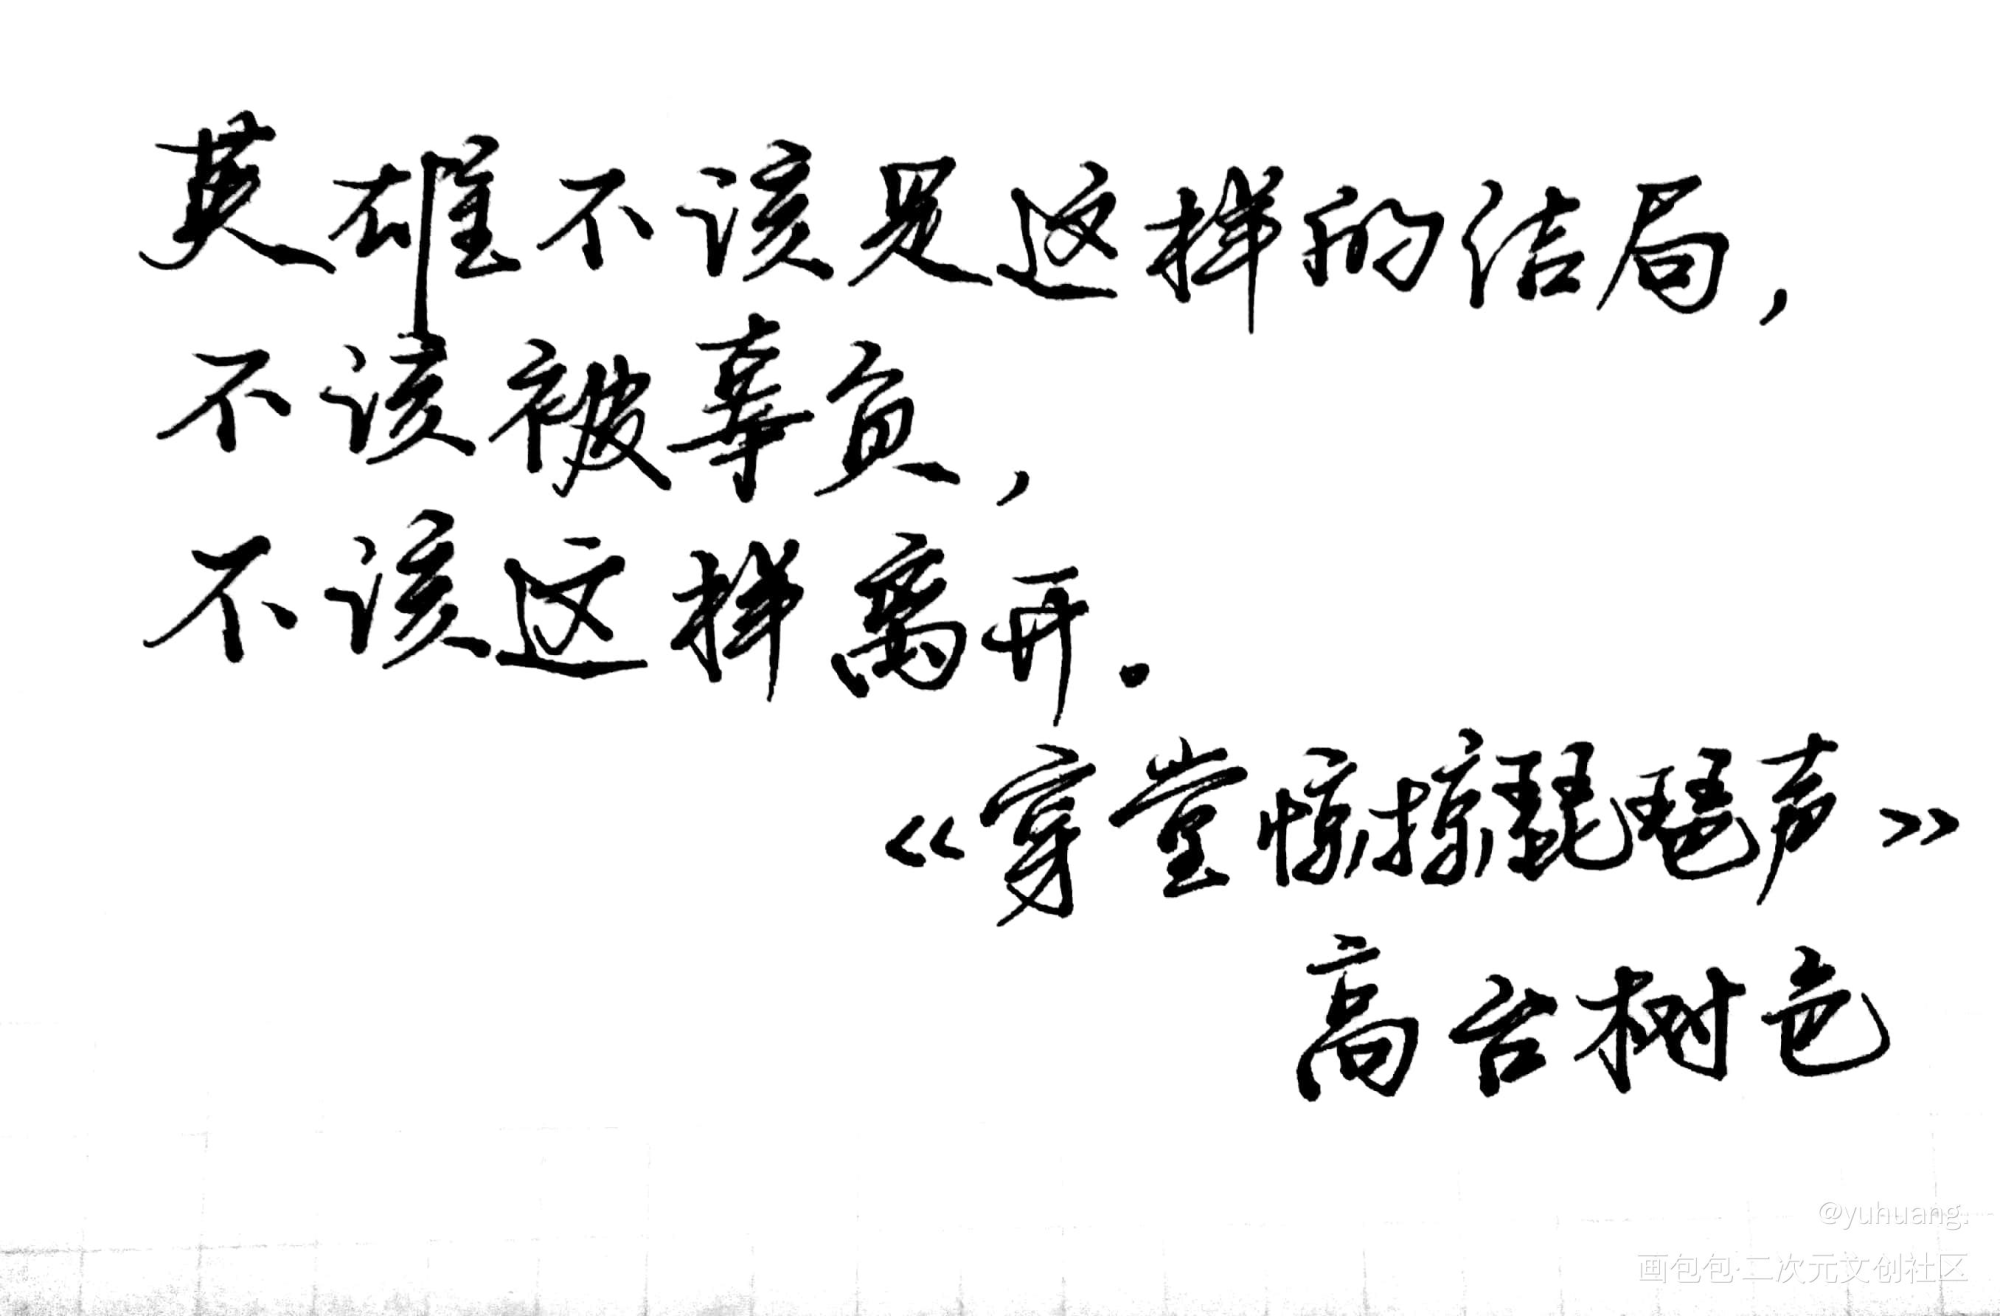 英雄不该是这样的结局，
不该被辜负，
不该这样离开。
《穿堂惊掠琵琶声》
高台树色
@yuhuang.
画包包·二次元文创社区